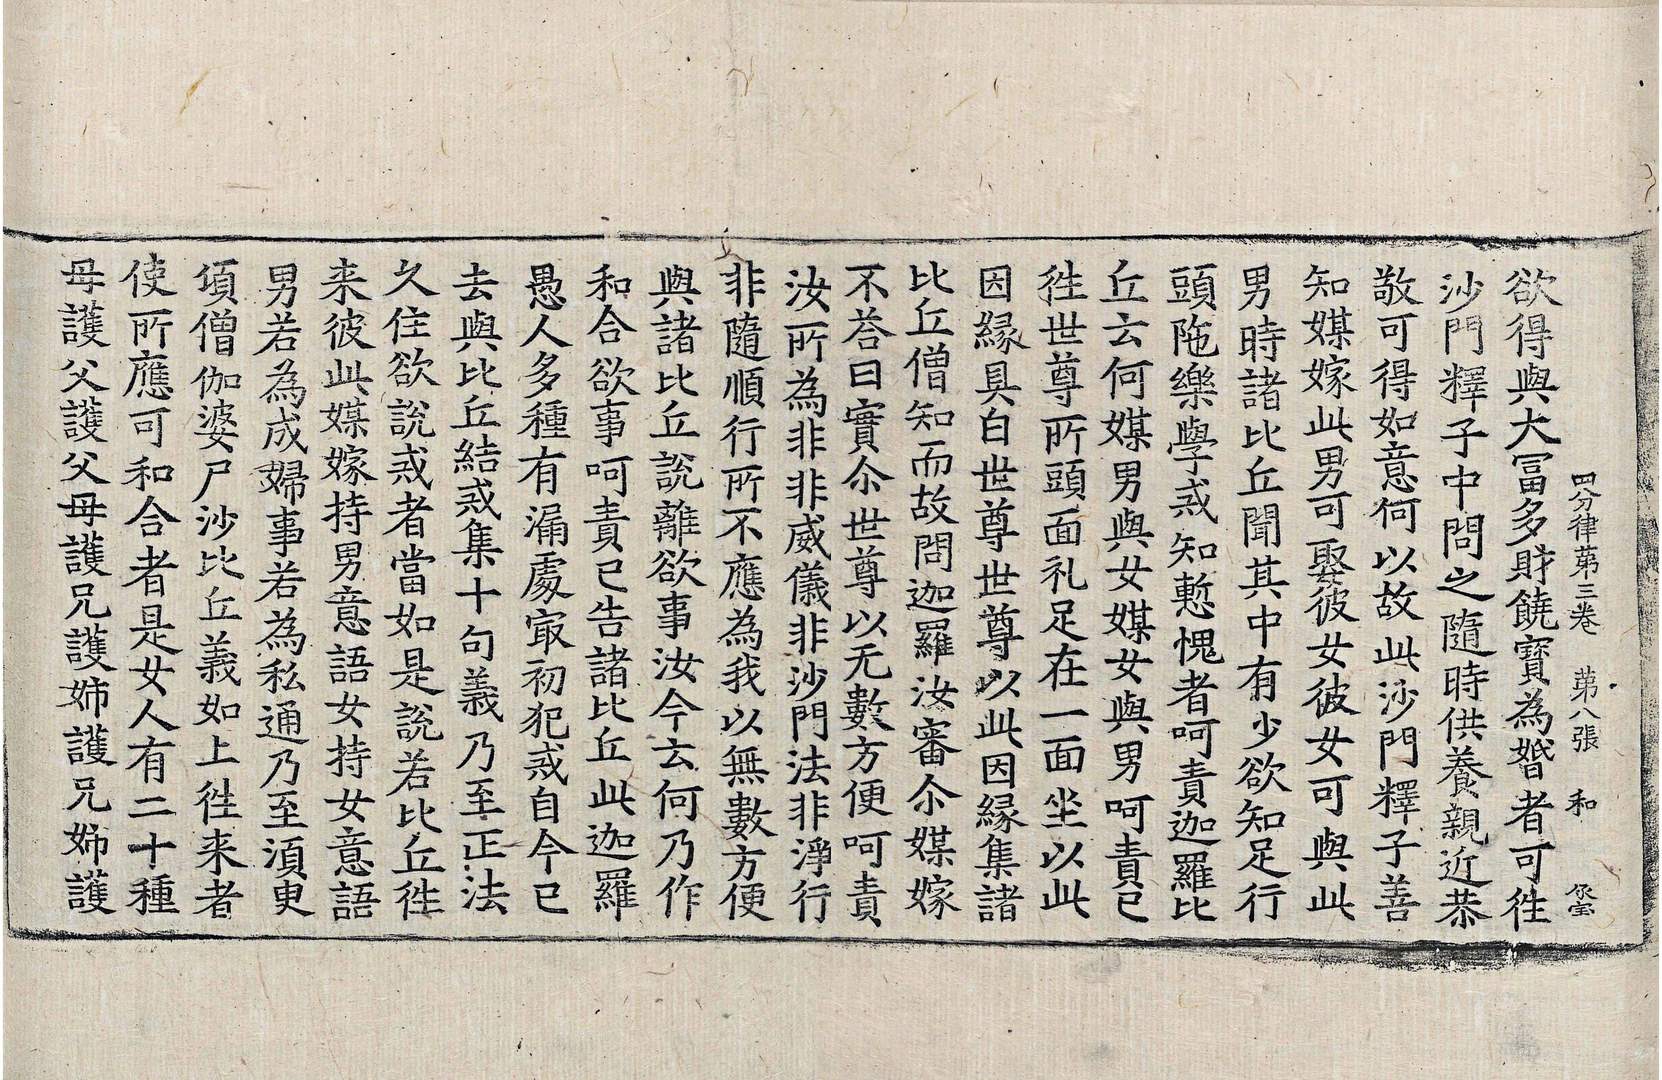 四分律苐三卷 苐八張 和
欲得與大冨多財饒寶為婚者可徃
沙門釋子中問之隨時供養親近恭
敬可得如意何以故此沙門釋子善
知媒嫁此男可娶彼女彼女可與此
男時諸比丘聞其中有少欲知足行
頭陁樂學戒知慙愧者呵責迦羅比
丘云何媒男與女媒女與男呵責已
徃世尊所頭面礼足在一面坐以此
因縁具白世尊世尊以此因縁集諸
比丘僧知而故問迦羅汝審尒媒嫁
不荅曰實尒世尊以无數方便呵責
汝所為非非威儀非沙門法非淨行
非隨順行所不應為我以無數方便
與諸比丘說離欲事汝今云何乃作
和合欲事呵責已告諸比丘此迦羅
愚人多種有漏處冣初犯戒自今已
去與比丘結戒集十句義乃至正法
久住欲說戒者當如是說若比丘徃
来彼此媒嫁持男意語女持女意語
男若為成婦事若為私通乃至湏臾
項僧伽婆尸沙比丘義如上徃来者
使所應可和合者是女人有二十種
母護父護父母護兄護姉護兄姉護